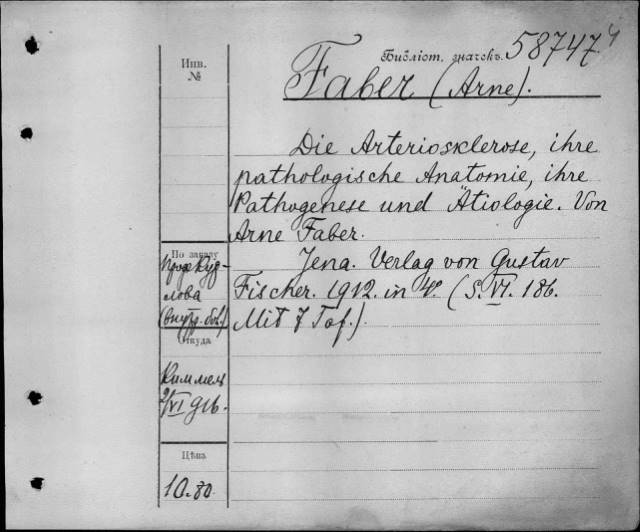 Библіот. значекъ. 58747 4
Инв.
№
Faber (Arne).
Die Arteriosklerose, ihre
pathologische Anatomie, ihre
Pathogenese und Ätiologie. Von
Arne Faber.
Jena. Verlag von Gustav
Fischer. 1912. in 4°. (S. VI. 186.
Mit 7 Taf.).
По заказу
лова
Откуда
Киммель
VI 916.
Цѣна
10.80